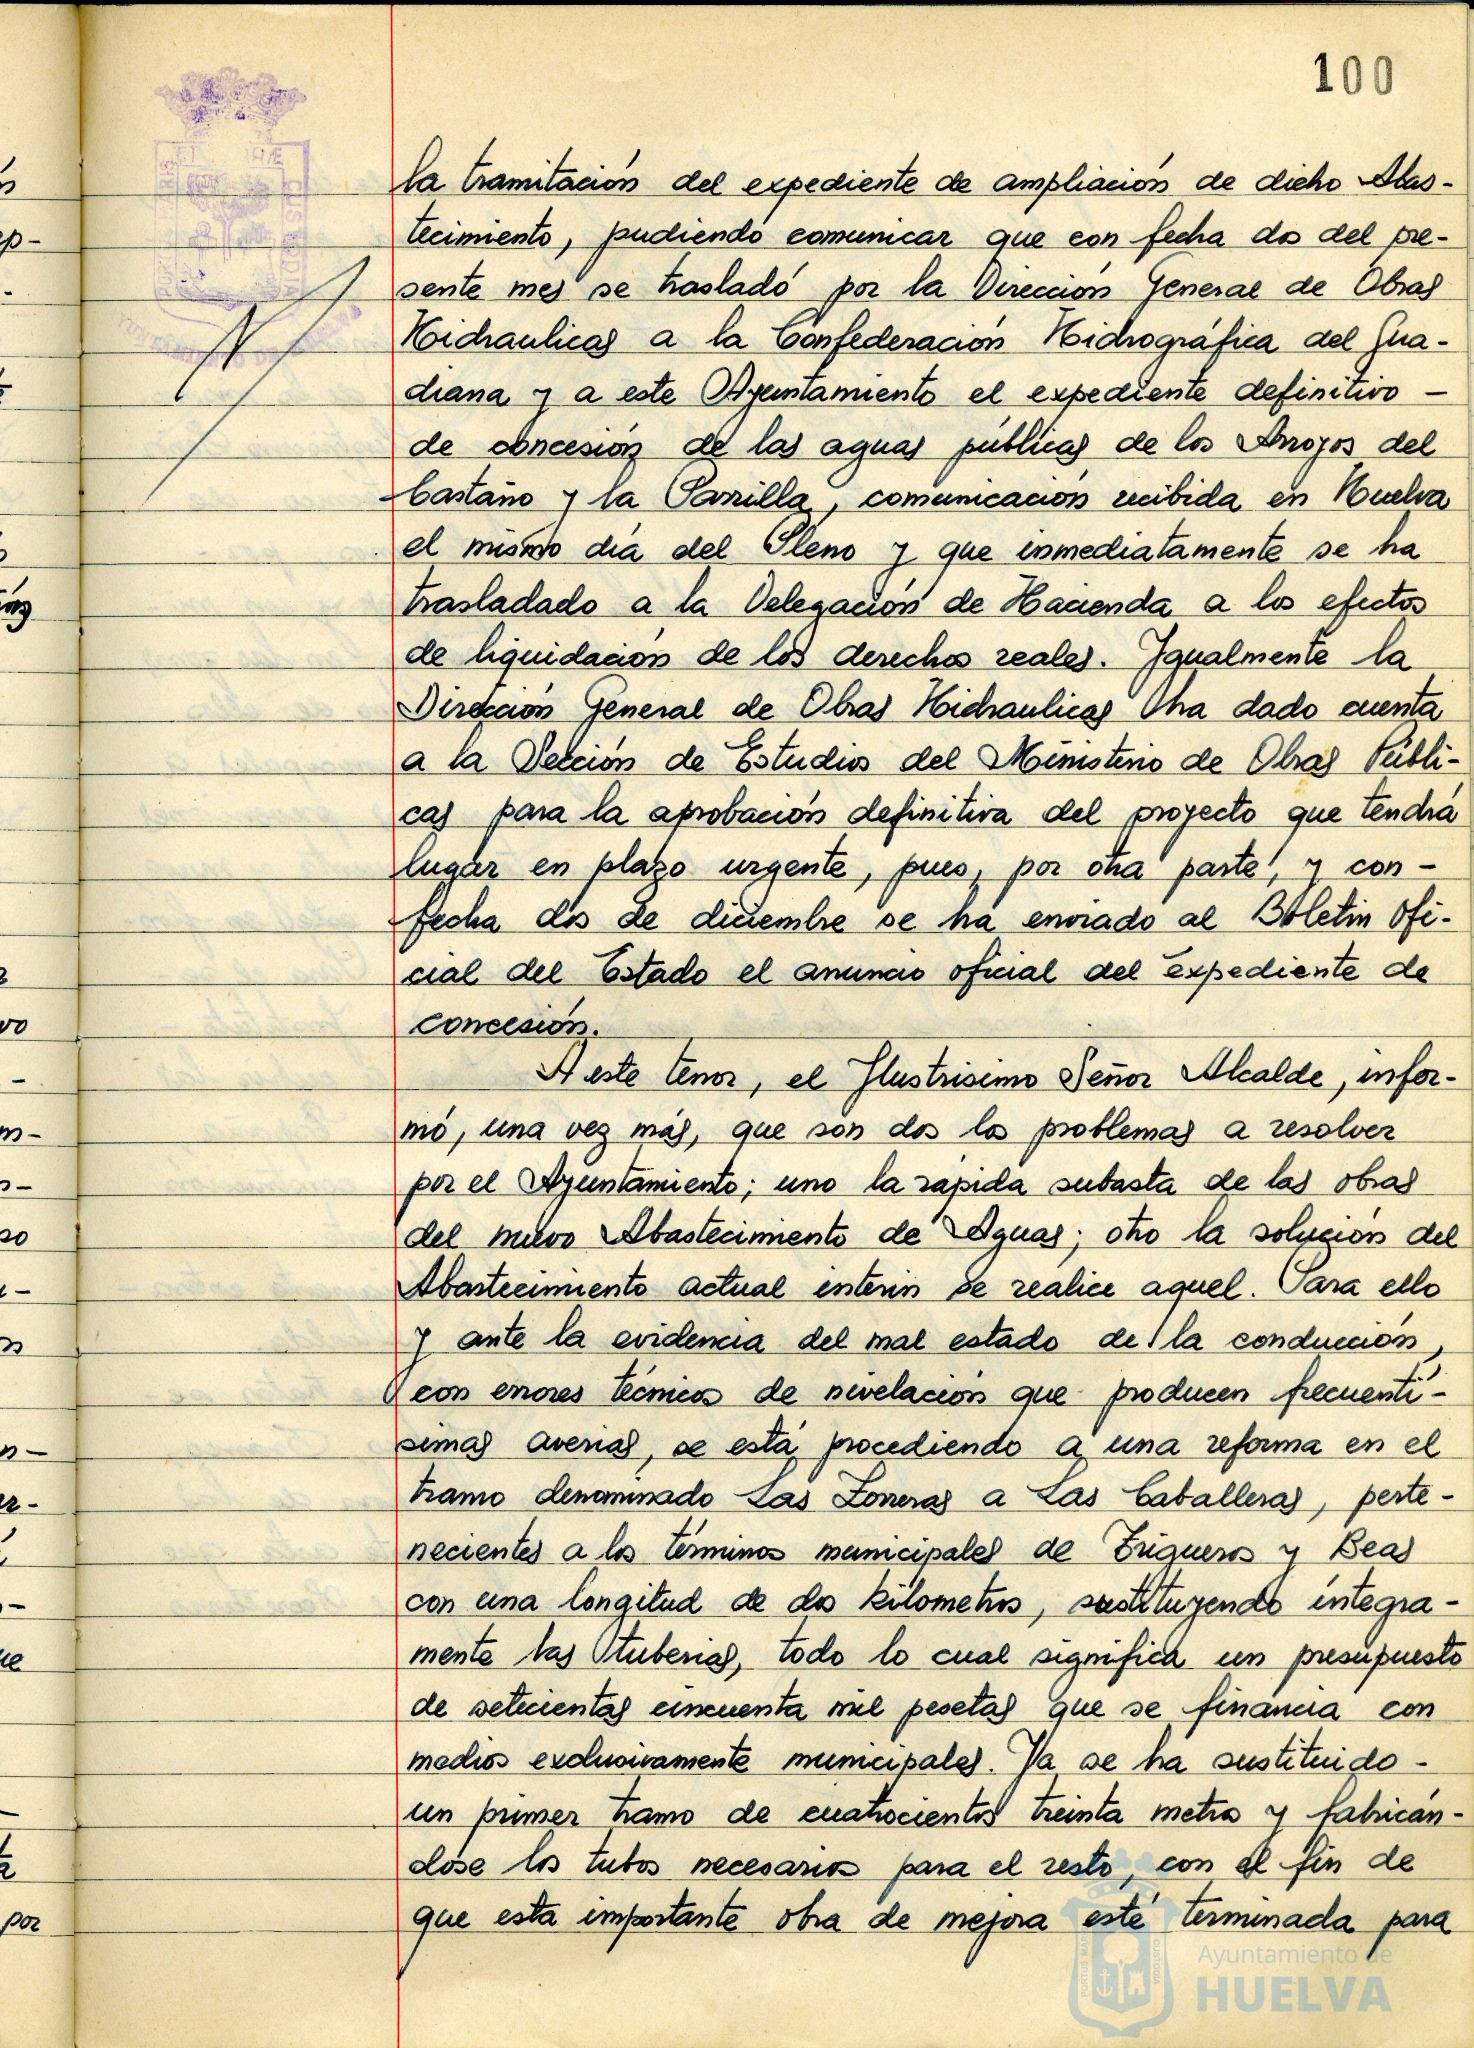 100
la tramitación del expediente de ampliación de dicho Abas-
tecimiento, pudiendo comunicar que con fecha dos del pre-
sente mes se trasladó por la Dirección General de Obras
Hidraulicas a la Confederación Hidrográfica del Gua-
diana y a este Ayuntamiento el expediente definitivo -
de concesión de las aguas públicas de los Arroyos del
Castaño y la Parrilla, comunicación recibida en Huelva
el mismo día del Pleno y que inmediatamente se ha
trasladado a la Delegación de Hacienda a los efectos
de liquidación de los derechos reales. Igualmente la
Dirección General de Obras Hidraulicas ha dado cuenta
a la Sección de Estudios del Ministerio de Obras Públi-
cas para la aprobación definitiva del proyecto que tendrá
lugar en plazo urgente, pues, por otra parte, y con -
fecha dos de diciembre se ha enviado al Boletin Ofi-
cial del Estado el anuncio oficial del expediente de
concesión.
A este tenor, el Ilustrisimo Señor Alcalde, infor-
mó, una vez más, que son dos los problemas a resolver
por el Ayuntamiento; uno la rápida subasta de las obras
del nuevo Abastecimiento de Aguas; otro la solución del
Abastecimiento actual interin se realice aquel. Para ello
y ante la evidencia del mal estado de la conducción,
con errores técnicos de nivelación que producen frecuentí-
simas averias, se está procediendo a una reforma en el
tramo denominado Las Zorreras a Las Caballeras, perte-
necientes a los términos municipales de Trigueros y Beas
con una longitud de dos kilometros, sustituyendo integra-
mente las tuberias, todo lo cual significa un presupuesto
de setecientas cincuenta mil pesetas que se financia con
medios exclusivamente municipales. Ya se ha sustituido -
un primer tramo de cuatrocientos treinta metros y fabricán-
dose los tubos necesarios para el resto, con el fin de
que esta importante obra de mejora esté terminada para
Ayuntamiento de
HUELVA